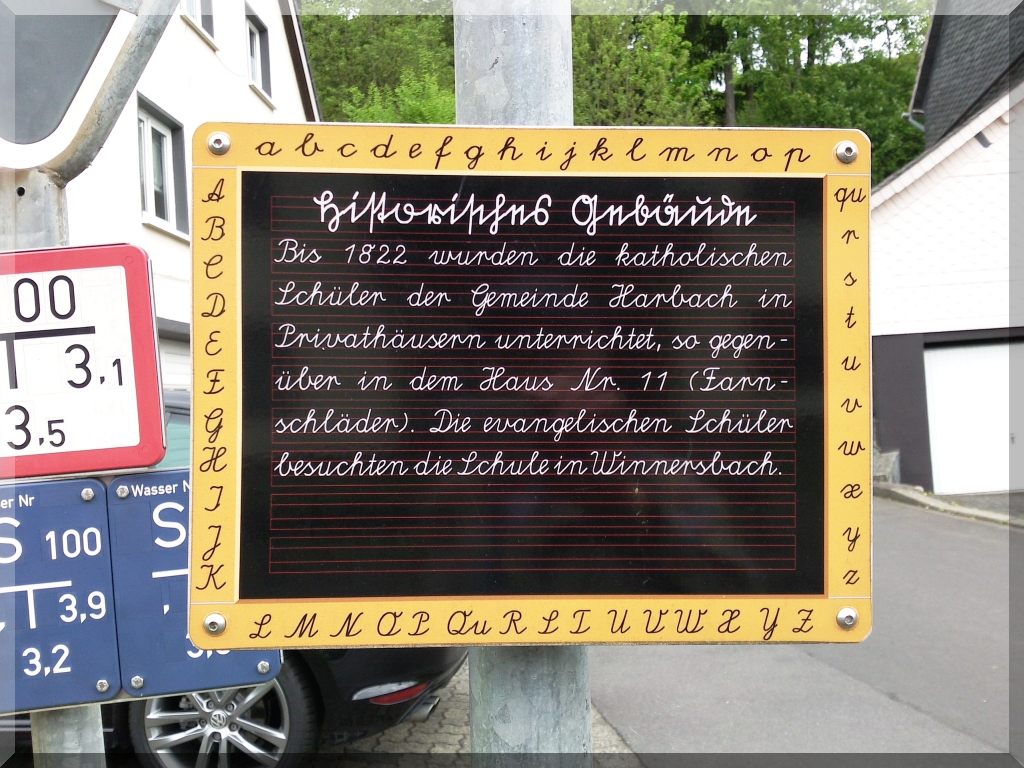 a b c d e f g h i j k l m n o p
A B C D E F G H I J K
qu r s t u v w x y z
L M N O P Qu R S T U V W X Y Z
Historisches Gebäude
Bis 1822 wurden die katholischen
Schüler der Gemeinde Harbach in
Privathäusern unterrichtet, so gegen-
über in dem Haus Nr. 11 (Farn-
schläder). Die evangelischen Schüler
besuchten die Schule in Winnersbach.
00
3,1
3,5
er Nr
S 100
3,9
3,2
Wasser N
S